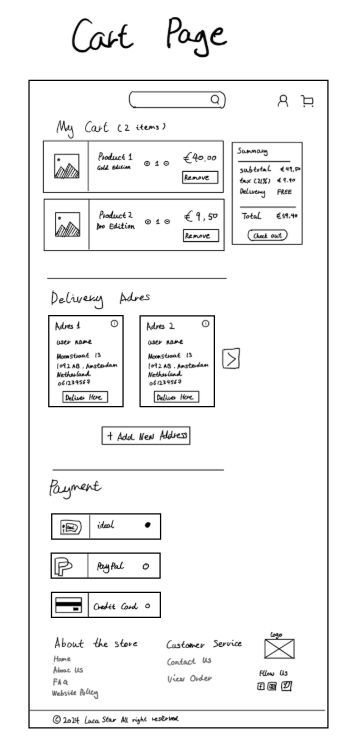 Cart Page
My Cart (2 items)
Product 1
Gold Edition
1
€40,00
Remove
Product 2
Pro Edition
1
€9,50
Remove
Summary
subtotal €49,50
tax (21%) €9.90
Delivery FREE
Total €59.40
Check out
Delivery Adres
Adres 1
user name
Moonstraat 13
1092 AB, Amsterdam
Netherland
061234567
Deliver Here
Adres 2
user name
Moonstraat 13
1092 AB, Amsterdam
Netherland
061234567
Deliver Here
+ Add New Address
Payment
ideal
PayPal
Credit Card
About the store
Home
About Us
FAQ
Website Policy
Customer Service
Contact Us
View Order
Logo
Fllow Us
© 2024 Luca Star All right reserved